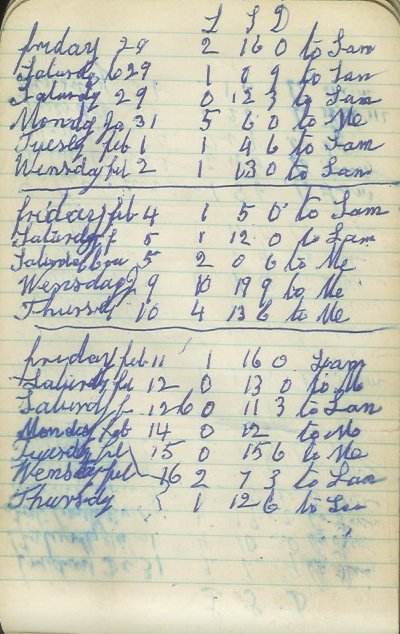 L S D
friday 28 2 16 0 to Sam
Saturdy 6 29 1 8 9 to Sam
Saturdy 29 0 12 3 to Sam
Monday Ja 31 5 6 0 to Me
Tuesdy feb 1 1 4 6 to Sam
Wensday feb 2 1 13 0 to Sam
friday feb 4 1 5 0 to Sam
Saturday f 5 1 12 0 to Sam
Saturday 5 2 0 6 to Me
Wensday 9 10 19 9 to Me
Thursdy 10 4 13 6 to Me
friday feb 11 1 16 0 Sam
Saturdy feb 12 0 13 0 to Me
Saturdy f 12 6 0 11 3 to Sam
Monday feb 14 0 12 to Me
Tuesdy feb 15 0 15 6 to Me
Wensday feb 16 2 7 3 to Sam
Thursdy 1 12 6 to Sam